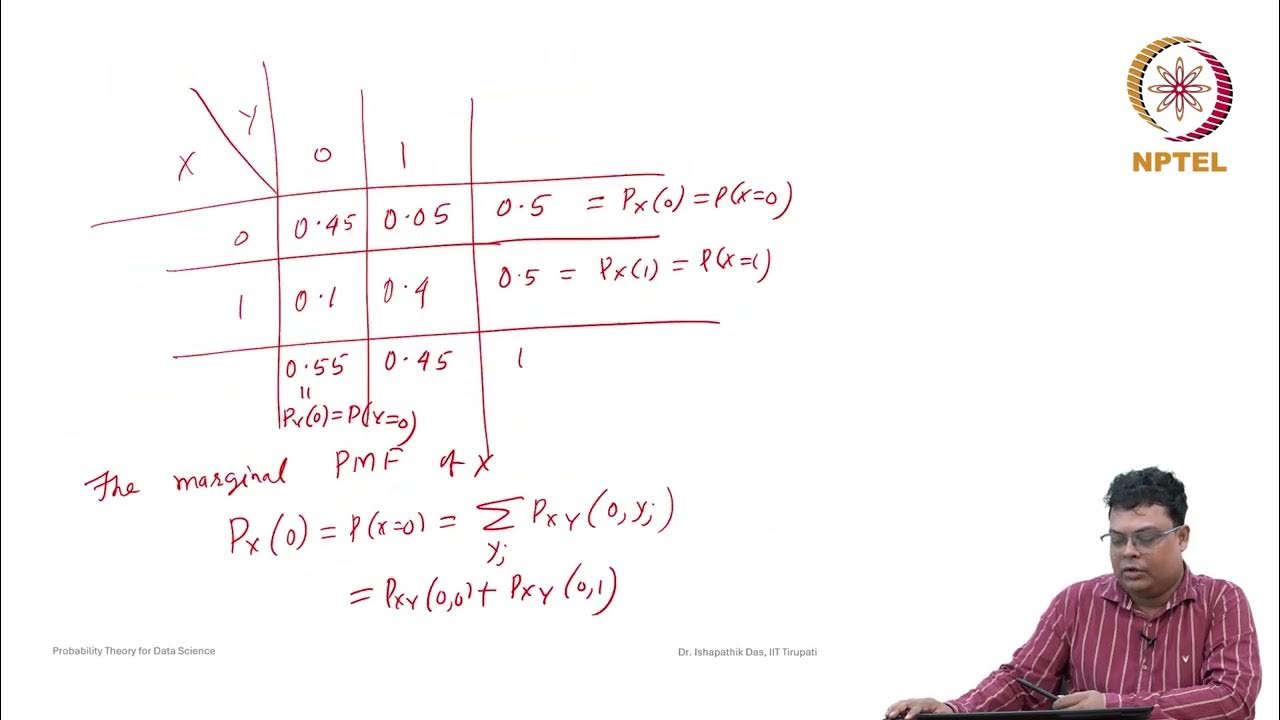 NPTEL
Y
X
0 1
0 0.45 0.05 0.5 = P_X(0) = P(X=0)
1 0.1 0.4 0.5 = P_X(1) = P(X=1)
0.55 0.45 1
||
P_Y(0) = P(Y=0)
The marginal PMF of X
P_X(0) = P(X=0) = ∑_{y_j} P_{XY}(0, y_j)
= P_{XY}(0,0) + P_{XY}(0,1)
Probability Theory for Data Science
Dr. Ishapathik Das, IIT Tirupati